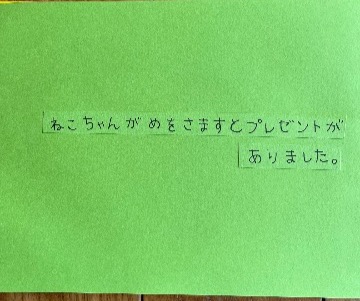 ねこちゃんがめをさますとプレゼントが
ありました。